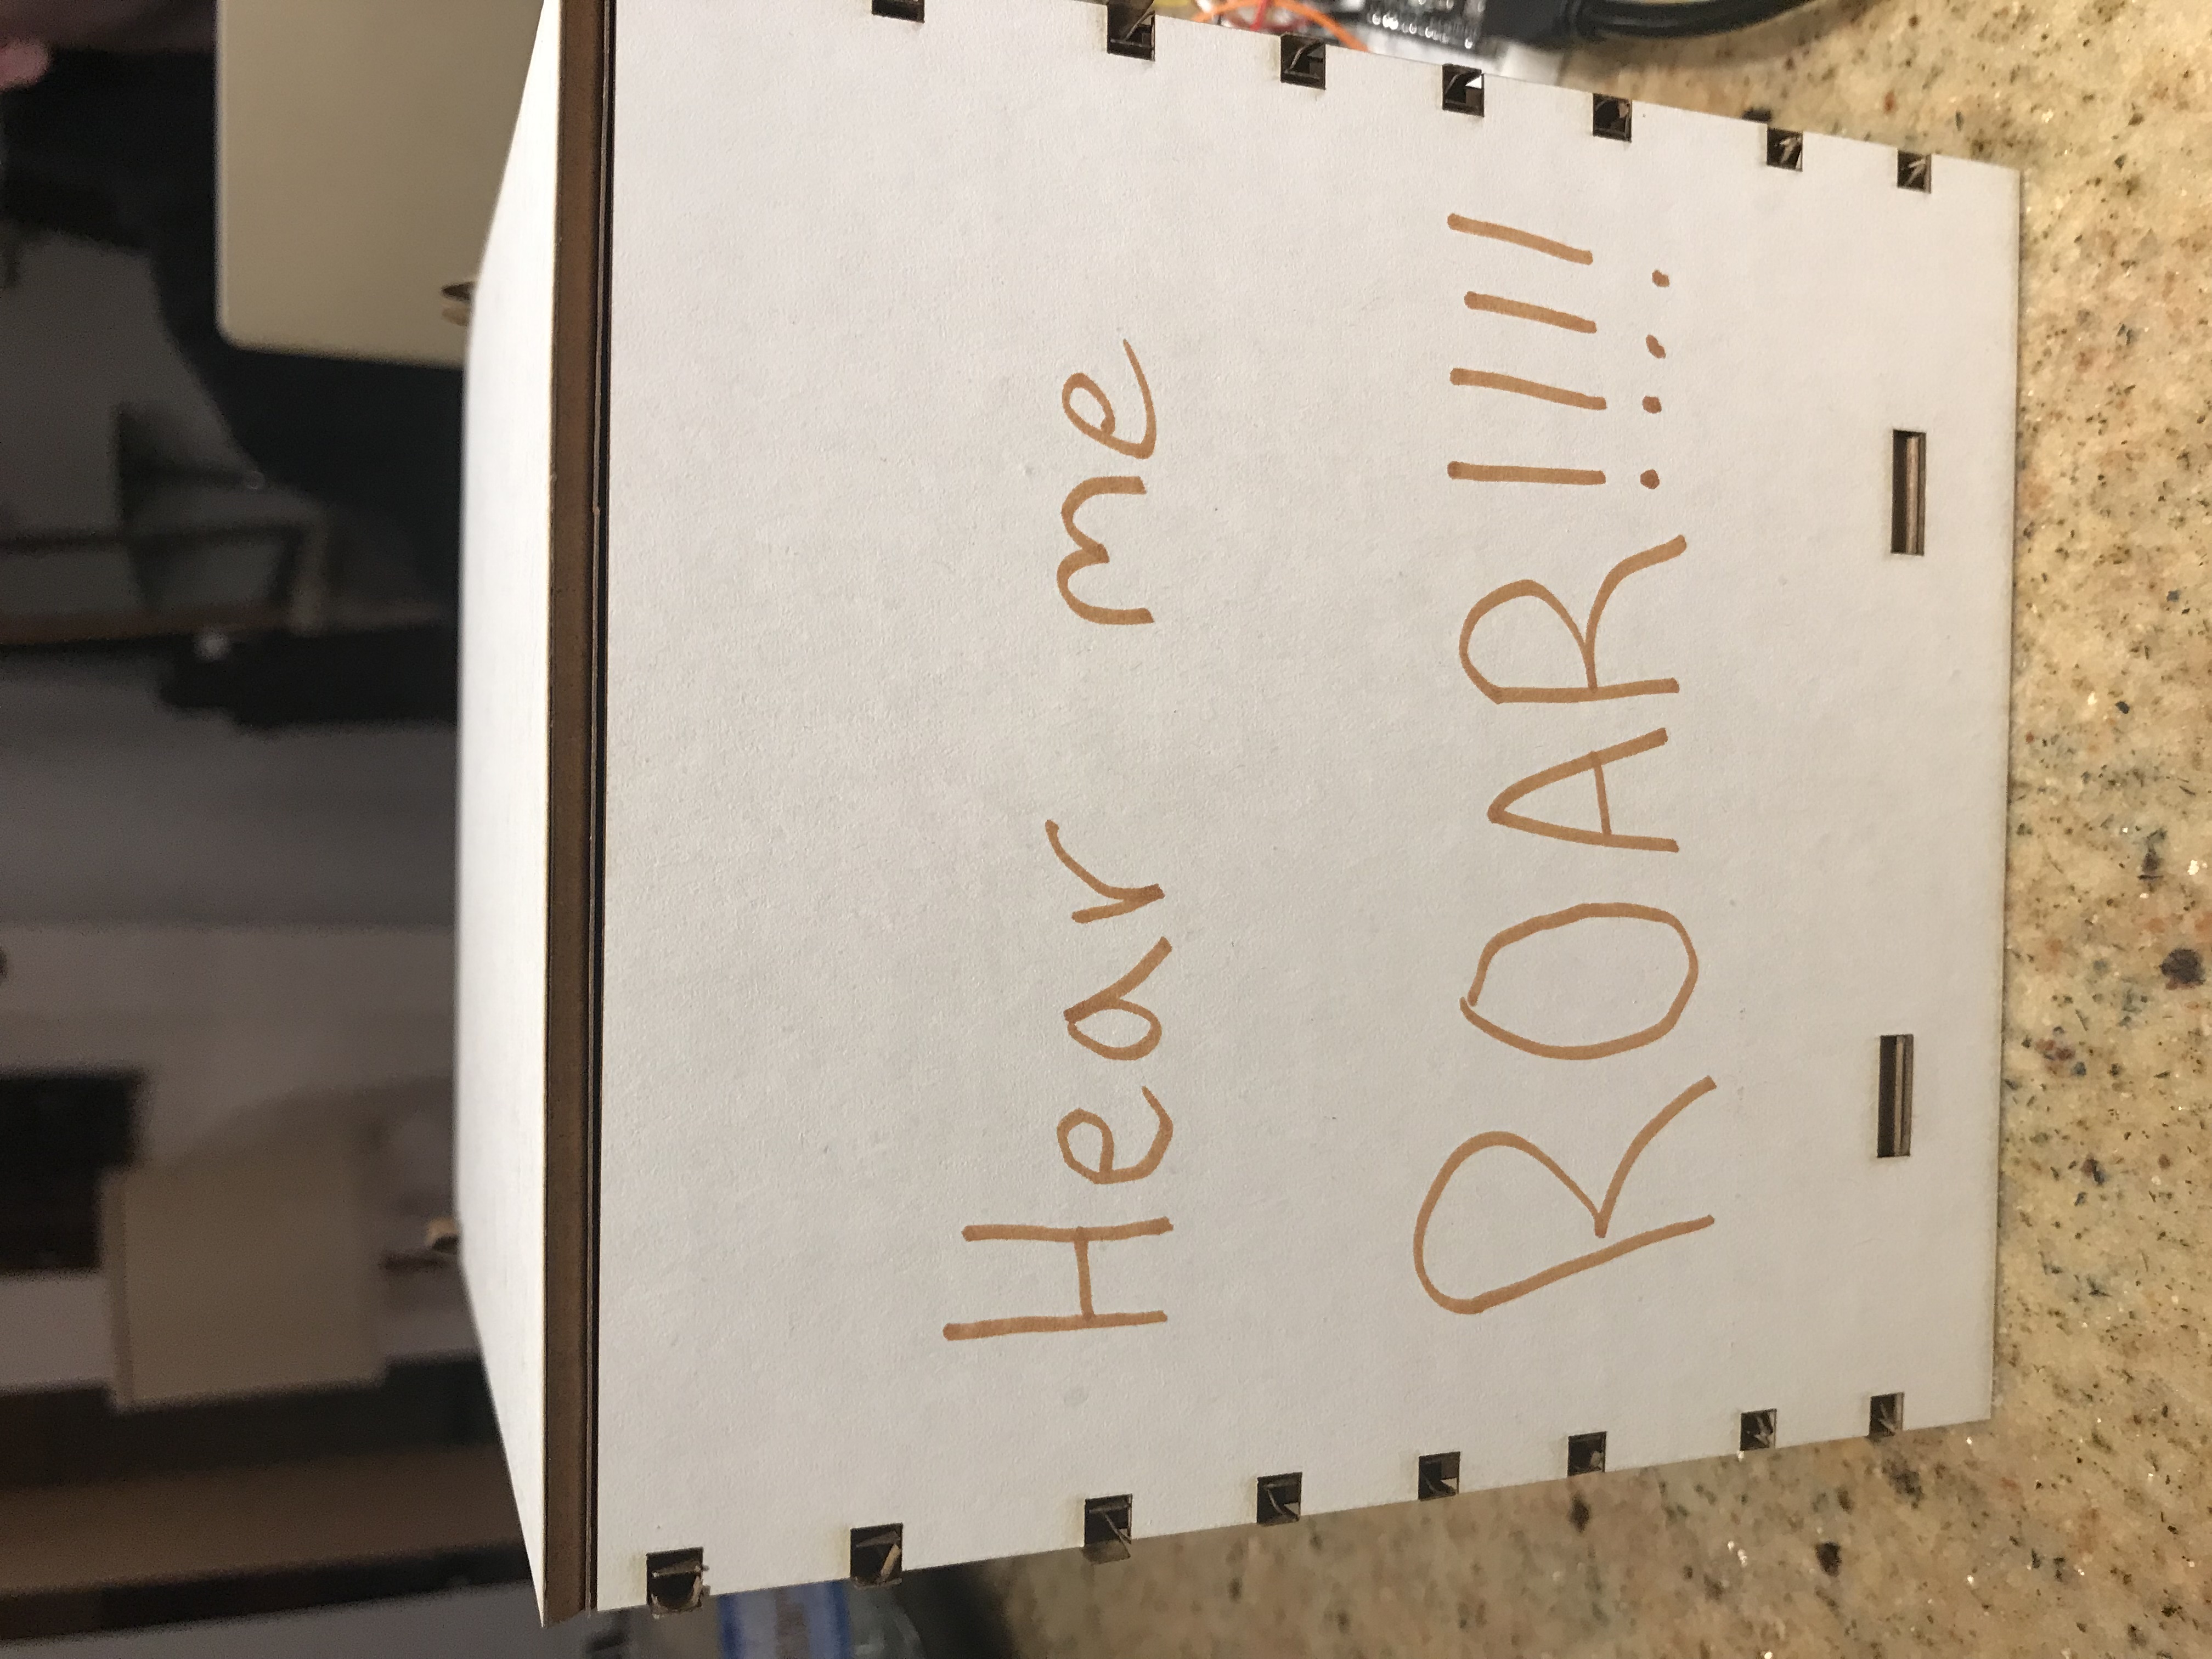 Hear me
ROAR!!!!